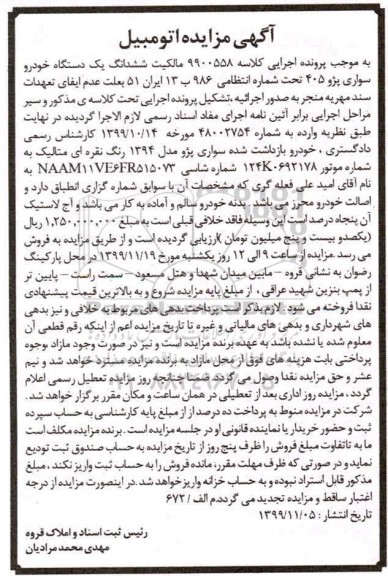 آگهی مزایده اتومبیل
به موجب پرونده اجرایی کلاسه ۹۹۰۰۵۵۸ مالکیت ششدانگ یک دستگاه خودرو
سواری پژو ۴۰۵ تحت شماره انتظامی ۹۸۶ ب ۱۳ ایران ۵۱ بعلت عدم ایفای تعهدات
سند مهریه منجر به صدور اجرائیه ،تشکیل پرونده اجرایی تحت کلاسه ی مذکور و سیر
مراحل اجرایی برابر آئین نامه اجرای مفاد اسناد رسمی لازم الاجرا گردیده در نهایت
طبق نظریه وارده به شماره ۴۸۰۰۲۷۵۴ مورخه ۱۳۹۹/۱۰/۱۴ کارشناس رسمی
دادگستری ، خودرو بازداشت شده سواری پژو مدل ۱۳۹۴ رنگ نقره ای متالیک به
شماره موتور ۱۲۴K۰۶۹۲۱۷۸ شماره شاسی NAAM۱۱VE۶FR۵۱۵۰۷۳ به
نام آقای امید علی فعله گری که مشخصات آن با سوابق شماره گزاری انطباق دارد و
اصالت خودرو محرز می باشد . بدنه خودرو سالم و آماده به کار می باشد و آج لاستیک
آن پنجاه درصد است این وسیله فاقد خلافی قبلی است به مبلغ ۱,۲۵۰,۰۰۰,۰۰۰ ریال
(یکصدو بیست و پنج میلیون تومان )ارزیابی گردیده است و از طریق مزایده به فروش
می رسد .مزایده از ساعت ۹ الی ۱۲ روز یکشنبه مورخ ۱۳۹۹/۱۱/۱۹ در محل پارکینگ
رضوان به نشانی قروه – مابین میدان شهدا و هتل مسعود – سمت راست – پایین تر
از پمپ بنزین شهید عراقی ، از مبلغ پایه مزایده شروع و به بالاترین قیمت پیشنهادی
نقدا فروخته می شود . لازم بذکر است پرداخت بدهی های مربوط به خلافی و نیز بدهی
های شهرداری و بدهی های مالیاتی و غیره تا تاریخ مزایده اعم از اینکه رقم قطعی آن
معلوم شده یا نشده باشد به عهده برنده مزایده است و نیز در صورت وجود مازاد بوجوه
پرداختی بابت هزینه های فوق از محل مازاد به برنده مزایده مسترد خواهد شد و نیم
عشر و حق مزایده نقدا وصول می گردد. ضمنا چنانچه روز مزایده تعطیل رسمی اعلام
گردد ، مزایده روز اداری بعد از تعطیلی در همان ساعت و مکان مقرر برگزار خواهد شد .
شرکت در مزایده منوط به پرداخت ده درصد از از مبلغ پایه کارشناسی به حساب سپرده
ثبت و حضور خریدار یا نماینده قانونی او در جلسه مزایده است . برنده مزایده مکلف است
ما به تاتفاوت مبلغ فروش را ظرف پنج روز از تاریخ مزایده به حساب صندوق ثبت تودیع
نماید و در صورتی که ظرف مهلت مقرر ، مانده فروش را به حساب ثبت واریز نکند ، مبلغ
مذکور قابل استرداد نبوده و به حساب خزانه واریز خواهد شد .در اینصورت مزایده از درجه
اعتبار ساقط و مزایده تجدید می گردد.م الف / ۶۷۲
تاریخ انتشار : ۱۳۹۹/۱۱/۰۵
رئیس ثبت اسناد و املاک قروه
مهدی محمد مرادیان